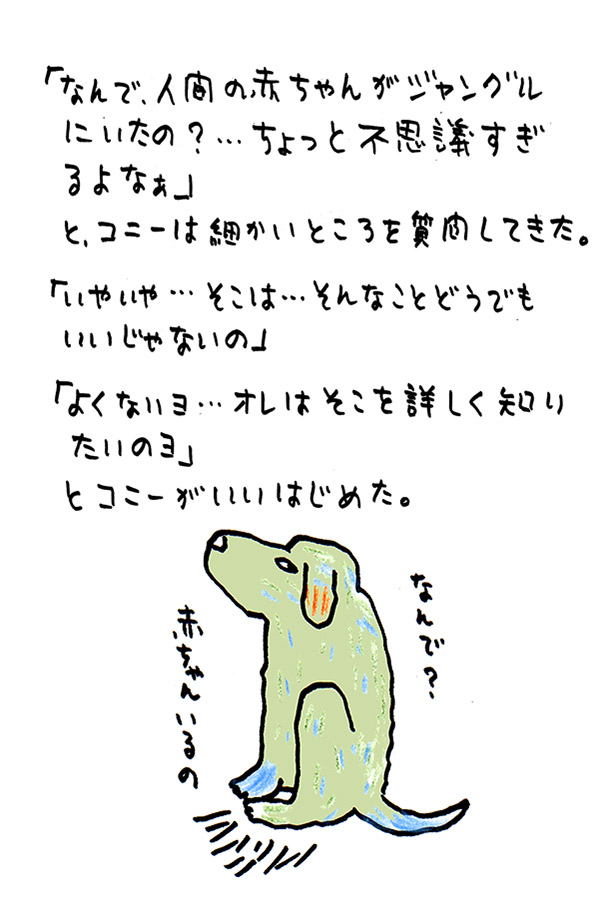 「なんで、人間の赤ちゃんがジャングル
にいたの？…ちょっと不思議すぎ
るよなぁ」
と、コニーは細かいところを質問してきた。
「いやいや…そこは…そんなことどうでも
いいじゃないの」
「よくないヨ…オレはそこを詳しく知り
たいのヨ」
とコニーがいいはじめた。
なんで？
赤ちゃんいるの